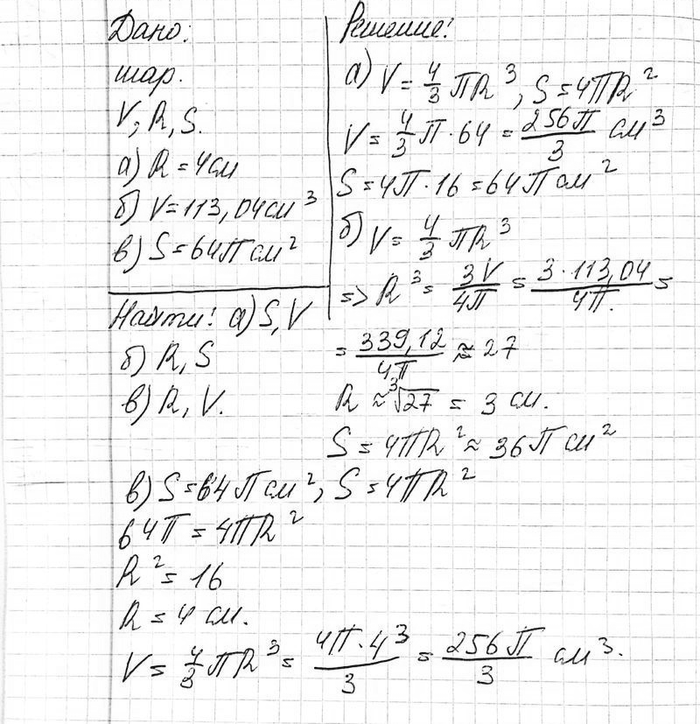 Дано:
шар.
V, R, S.
а) R = 4 см
б) V = 113,04 см³
в) S = 64π см²
Найти: а) S, V
б) R, S
в) R, V.
Решение:
а) V = 4/3 πR³, S = 4πR²
V = 4/3 π · 64 = 256π/3 см³
S = 4π · 16 = 64π см²
б) V = 4/3 πR³
=> R³ = 3V/4π = 3 · 113,04/4π. =
= 339,12/4π ≈ 27
R ≈ ³√27 = 3 см.
S = 4πR² ≈ 36π см²
в) S = 64π см², S = 4πR²
64π = 4πR²
R² = 16
R = 4 см.
V = 4/3 πR³ = 4π · 4³/3 = 256π/3 см³.